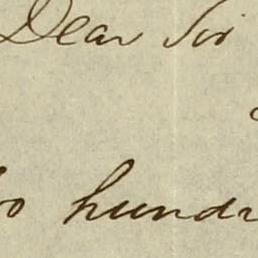 Dear Sir
o hundr